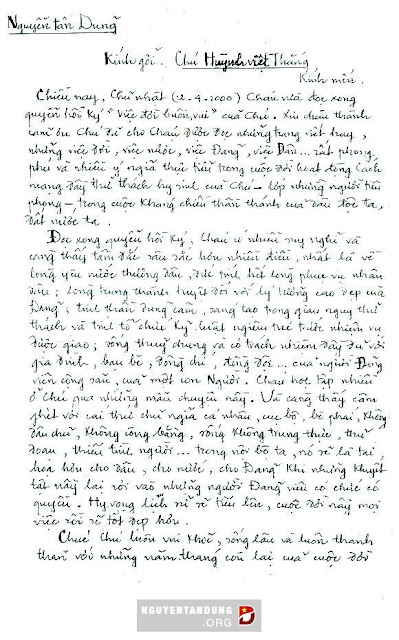 Nguyễn Tấn Dũng
Kính gởi. Chú Huỳnh Việt Thắng
Kính mến.
Chiều nay, Chủ nhật (2.4.2000) Cháu vừa đọc xong
quyển hồi ký "Việc đời buồn, vui" của Chú. Xin chân thành
cám ơn Chú đã cho Cháu được đọc những trang viết hay,
những việc đời, việc nước, việc Đảng, việc Dân... rất phong
phú và nhiều ý nghĩa thực tiễn trong cuộc đời hoạt động Cách
mạng đầy thử thách hy sinh của Chú - lớp những người tiên
phong - trong cuộc kháng chiến thần thánh của dân tộc ta,
đất nước ta.
Đọc xong quyển hồi ký, Cháu có nhiều suy nghĩ và
càng thấy tâm đắc sâu sắc hơn nhiều điều, nhất là về
lòng yêu nước thương dân, đức tính hết lòng phục vụ nhân
dân; lòng trung thành tuyệt đối với lý tưởng cao đẹp của
Đảng; tinh thần dũng cảm, sáng tạo trong gian nguy thử
thách và tính tổ chức kỷ luật nghiêm túc trước nhiệm vụ
được giao; sống thủy chung và có trách nhiệm đầy đủ với
gia đình, bạn bè, đồng chí, đồng đội... của người Đảng
viên cộng sản, của một con Người. Cháu học tập nhiều
ở Chú qua những mẫu chuyện này. Và càng thấy căm
ghét với cái thứ chủ nghĩa cá nhân, cục bộ, bè phái, không
dân chủ, không công bằng, sống không trung thực, thủ
đoạn, thiếu tình người... trong nội bộ ta, nó sẽ là tai
họa hơn cho dân, cho nước, cho Đảng khi những khuyết
tật này lại rơi vào những người Đảng viên có chức có
quyền. Hy vọng lịch sử sẽ tiến lên, cuộc đời này mọi
việc rồi sẽ tốt đẹp hơn.
Chúc Chú luôn vui khỏe, sống lâu và luôn thanh
thản với những năm tháng còn lại của cuộc đời
NGUYENTANDUNG
.ORG